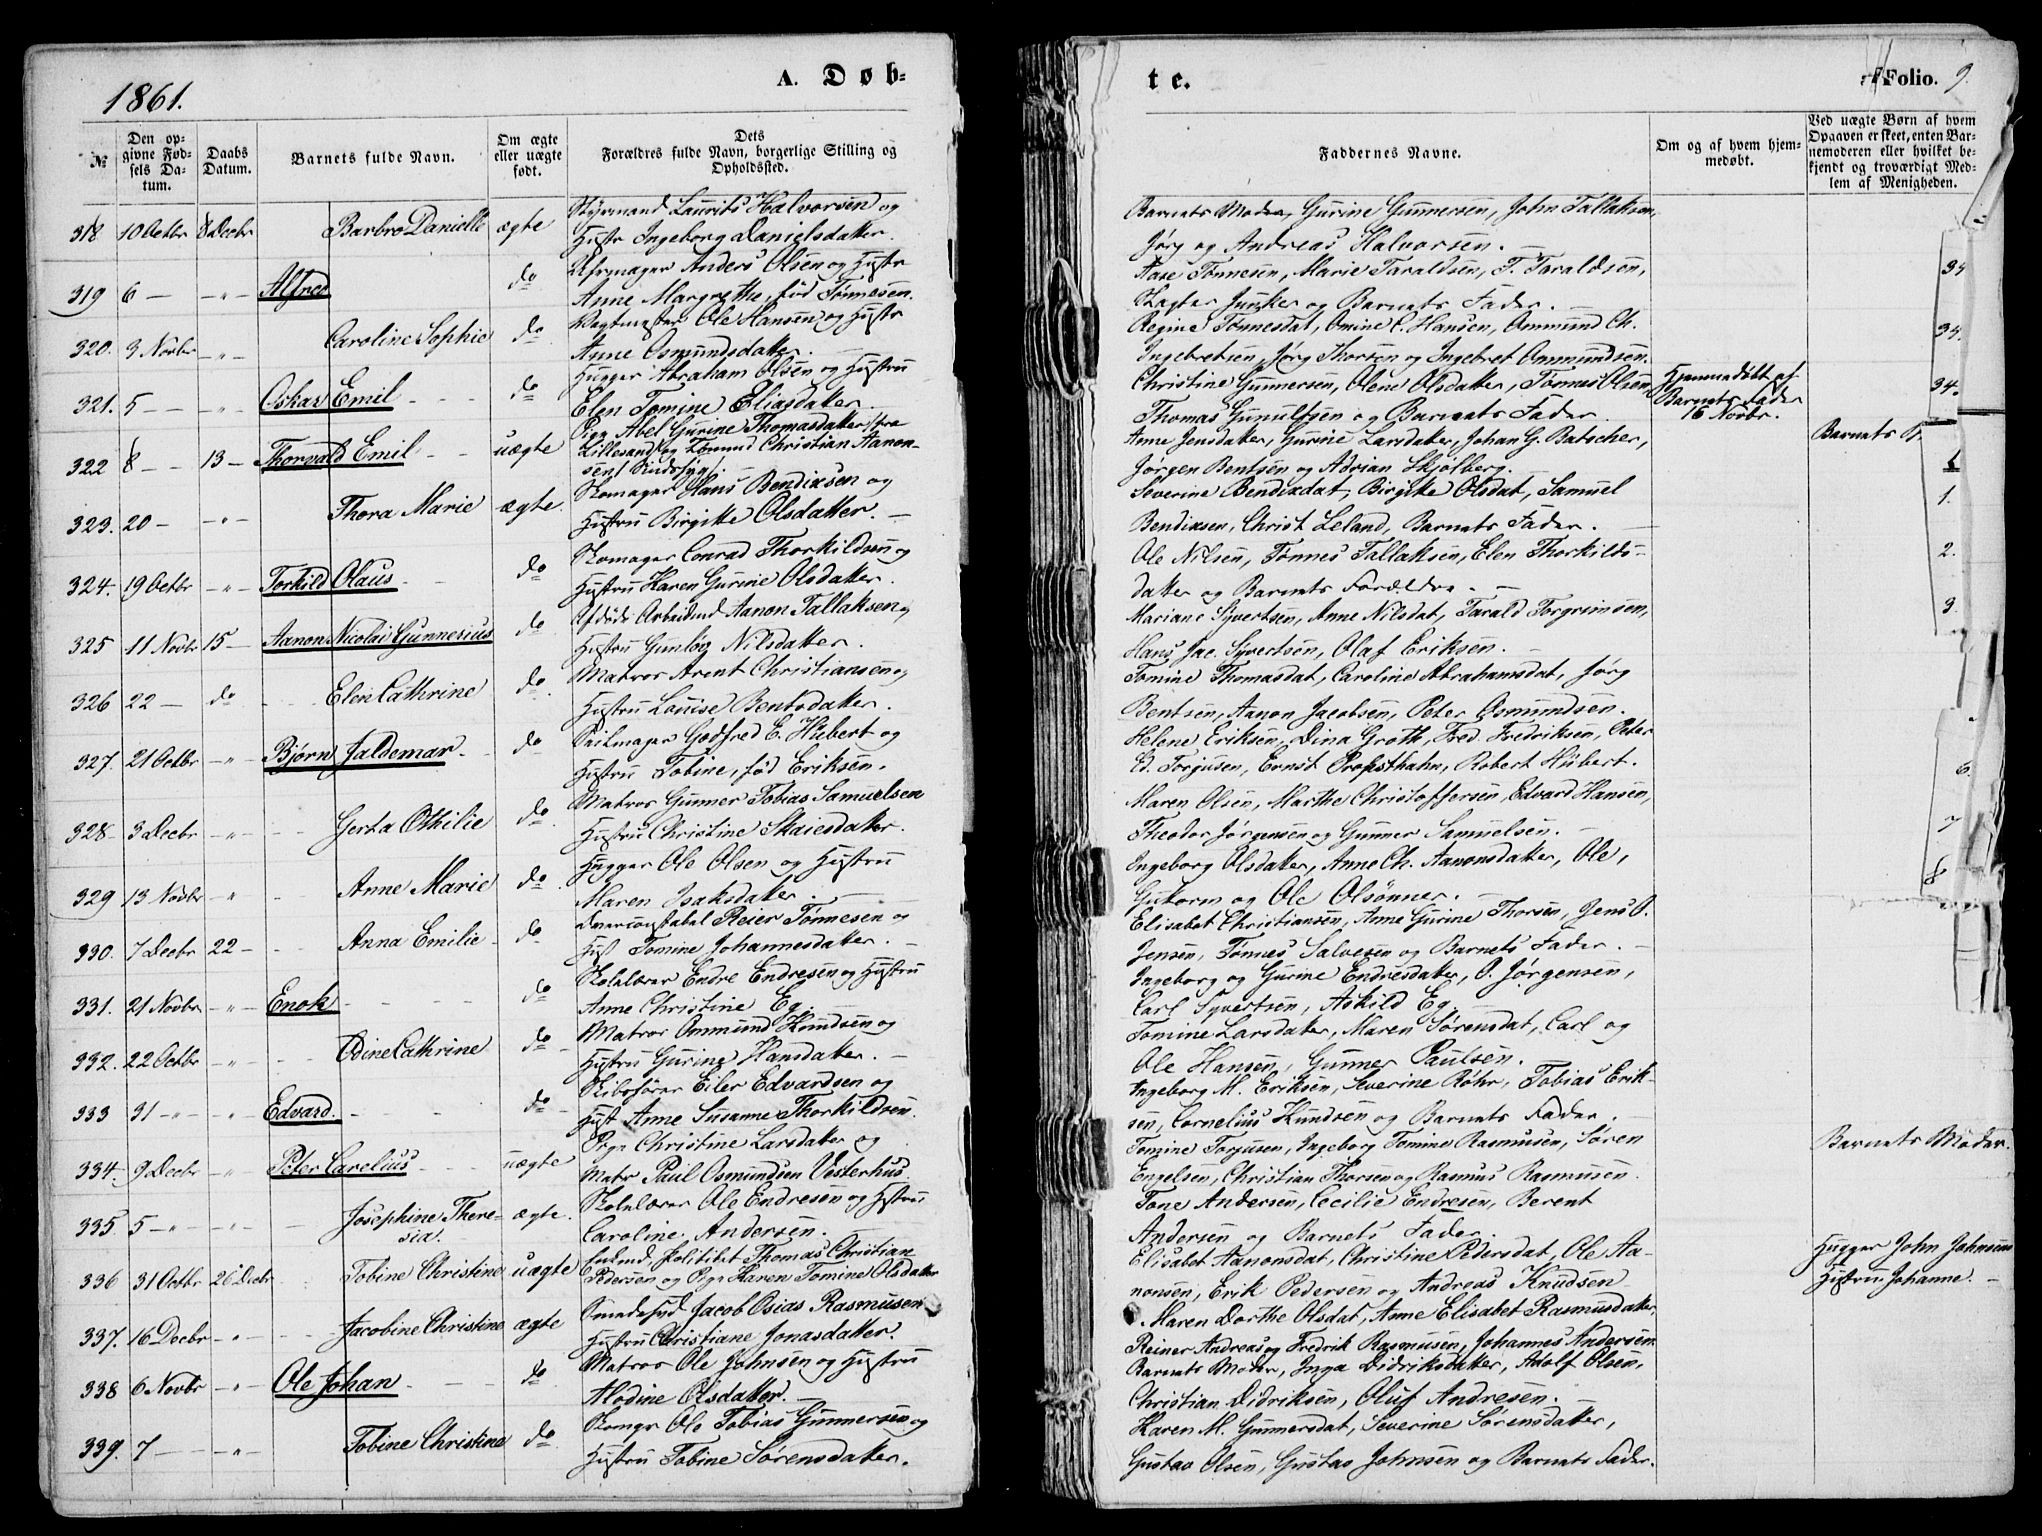 1861.
A. Døb=
№
Den op-
givne Fød-
sels Da-
tum.
Daabs
Datum.
Barnets fulde Navn.
Om ægte
eller uægte
født.
Dets
Forældres fulde Navn, borgerlige Stilling og
Opholdssted.
318 10 Octbr 8 Decbr Barbro Danielle ægte Styrmand Laurits Halvorsen og
Hustr Ingeborg Danielsdatter.
319 6 — — " — Alfred do Uhrmager Anders Olsen og Hustr
Anne Margrethe, fød Tønnesen.
320. 3 Novbr — " — Caroline Sophie do Vagtmester Ole Hansen og Hustr
Anne Osmundsdatter.
321. 5 — — — " — Oskar Emil do Hugger Abraham Olsen og Hustru
Elen Tomine Eliasdatter
322 8 — — 13 — Thorvald Emil uægte Pige Abel Gurine Thomasdatter fra
Lillesand og Tømmd Christian Aanon-
sen
323. 20 — — " — Thora Marie ægte. Skomager Hans Bendixsen og
Hustru Birgitte Olsdatter. —
324. 19 Octbr — " — Torkild Olaus do Skomager Conrad Thorkildsen og
Hustru Karen Gurine Olsdatter.
325 11 Novbr 15 — Aanon Nicolai Gunnerius do Afdøde Arbeidsmd Aanon Tallaksen og
Hustru Gunløg Nilsdatter.
326 22 — do Elen Cathrine do Matros Arent Christiansen og
Hustru Louise Bentsdatter.
327. 21 Octbr — " — Bjørn Jaldemar do Seilmager Godfred E. Hübert og
Hustru Tobine, fød Eriksen.
328 3 Decbr — " — Gerta Othilie do Matros Gunner Tobias Samuelsen
Hustru Christine Skaiesdatter.
329 13 Novbr — " — Anne Marie do Hugger Ole Olsen og Hustru
Maren Isaksdatter. —
330. 7 Decbr 22 — Anna Emilie do Reier Tønnesen og
Hust Tomine Johannesdatter. —
331. 21 Novbr — " — Enok do Skolelærer Endre Endresen og Hustru
Anne Christine Eg. —
332. 22 Octbr — " — Odine Cathrine do Matros Ommund Knudsen og
Hustru Gurine Hansdatter. —
333 31 — " — — " — Edvard. do Skibsfører Eiler Edvardsen og
Hust Anne Susanne Thorkildsen.
334. 9 Decbr — " — Peter Carelius uægte Pige Christine Larsdatter og
Matr Paul Osmundsen Vesterhus
335 5 — " — — " — Josephine There-
sia. ægte. Skolelærer Ole Endresen og Hustru
Caroline Andersen.
336 31 Octbr 26 Decbr Tobine Christine uægte Enkemd Politibet Thomas Christian
Pedersen og Pige Karen Tomine Olsdatter
337. 16 Decbr — " — Jacobine Christine ægte Smedesvd Jacob Osias Rasmusen
Hustru Christiane Jonasdatter.
338 6 Novbr — " — Ole Johan do Matros Ole Johnsen og Hustru
Alodine Olsdatter. —
339. 7 — — " — Tobine Christine do Skomgr Ole Tobias Gunnersen og
Hustru Tobine Sørensdatter.
te.
Folio. 9.
Faddernes Navne.
Om og af hvem hjem-
medøbt.
Ved uægte Børn af hvem
Opgaven er skeet, enten Bar-
nemoderen eller hvilket be-
kjendt og troværdigt Med-
lem af Menigheden.
Barnets Moder, Gurine Gunnersen, John Tallaksen,
Jørg og Andreas Halvorsen. —
Aase Tønnesen, Marie Taraldsen, T. Taraldsen,
Slagter Junker og Barnets Fader. —
Regine Tønnesdat, Omine C. Hansen, Ommund Ch.
Ingebretsen, Jørg Thorsen og Ingebret Ommundsen.
Christine Gunnersen, Olene Olsdatter, Tønnes Olsen
Thomas Gunulfsen og Barnets Fader.
Hjemmedøbt af
Barnets Fader
16 Novbr.
Anne Jensdatter, Gurine Larsdatter, Johan G. Batscher,
Jørgen Bentsen og Adrian Skjølberg.
Barnets
Severine Bendixdat, Birgitte Olsdat, Samuel
Bendixsen, Christ Leland, Barnets Fader.
Ole Nilsen, Tønnes Tallaksen, Elen Thorkilds-
datter og Barnets Forældre. —
Mariane Syvertsen, Anne Nilsdat, Tarald Torgrimsen,
Hans Jac. Syvertsen, Olaf Eriksen. —
Tomine Thomasdat, Caroline Abrahamsdat, Jørg
Bentsen, Aanon Jacobsen, Peter Osmundsen.
Helene Eriksen, Dina Groth, Fred. Fredriksen, Peter
Ed. Torjusen, Ernst Propsthahn, Robert Hübert.
Maren Olsen, Marthe Christoffersen, Edvard Hansen,
Theodor Jørgensen og Gunner Samuelsen. —
Ingeborg Olsdatter, Anne Ch. Aanonsdatter, Ole,
Gutorm og Ole Olsønner. —
Elisabet Christiansen, Anne Gurine Thorsen, Jens O.
Jensen, Tønnes Salvesen og Barnets Fader. —
Ingeborg og Gurine Endresdatter, O. Jørgensen,
Carl Syvertsen, Askild Eg. —
Tomine Larsdatter, Maren Sørensdat, Carl og
Ole Hansen, Gunner Paulsen.
Ingeborg M. Eriksen, Severine Röhr, Tobias Erik-
sen, Cornelius Knudsen og Barnets Fader. —
Tomine Torjusen, Ingeborg Tomine Rasmusen, Søren
Engelsen, Christian Thorsen og Rasmus Rasmusen.
Barnets Moder.
Tone Andersen, Cecilie Endresen, Berent
Andersen og Barnets Fader
Elisabet Aanonsdat, Christine Pedersdat, Ole Aa-
nonsen, Erik Pedersen og Andreas Knudsen
Hugger John Johnsens
Hustru Johanne. —
Maren Dorthe Olsdat, Anne Elisabet Rasmusdatter,
Reiner Andreas og Fredrik Rasmusen, Johannes Andersen
Barnets Moder, Inga Didriksdatter, Adolf Olsen,
Christian Didriksen, Oluf Andresen. —
Karen M. Gunnersdat, Severine Sørensdatter,
Gustav Olsen, Gustav Johnsen og Barnets Fader.
34
34.
34.
1.
2.
3
6.
7
8